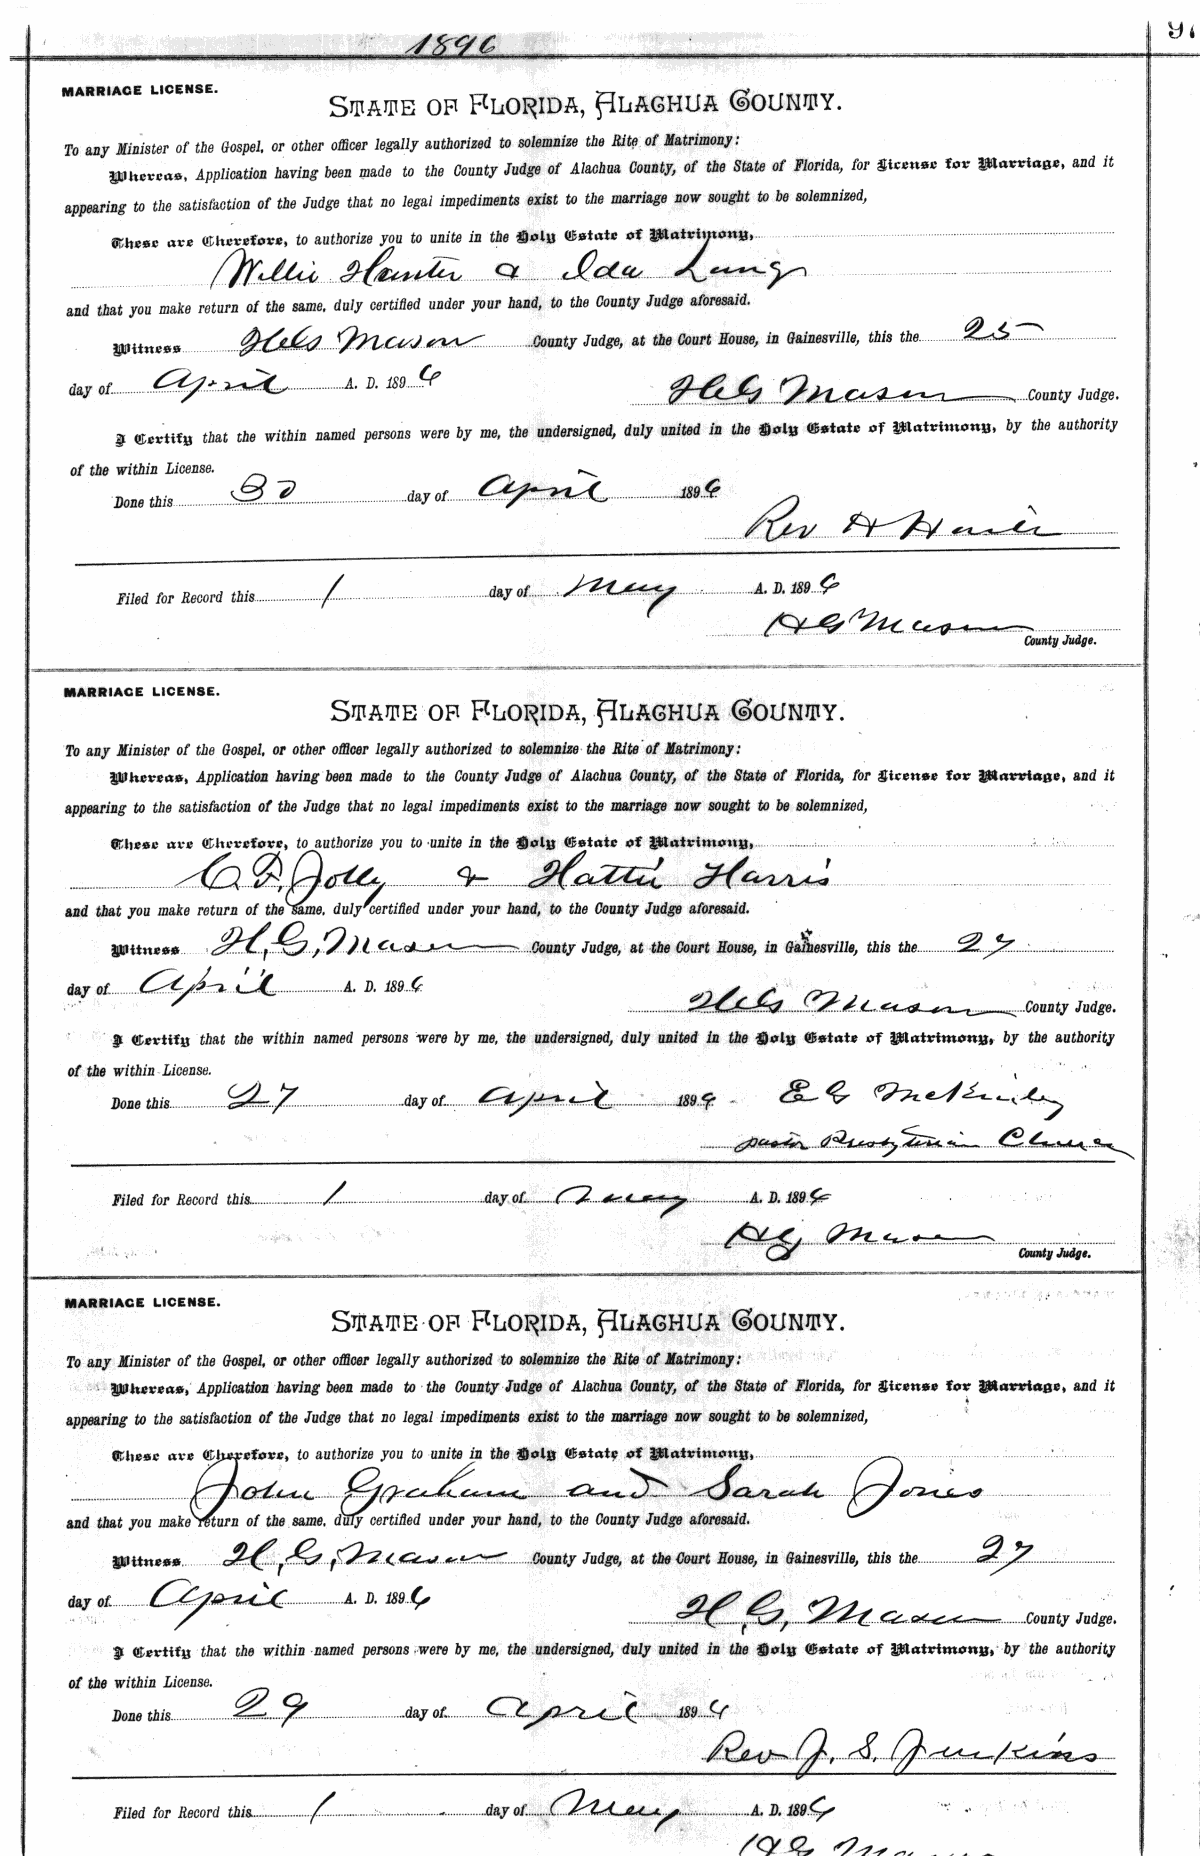 1896
97
MARRIAGE LICENSE.
STATE OF FLORIDA, ALACHUA COUNTY.
To any Minister of the Gospel, or other officer legally authorized to solemnize the Rite of Matrimony:
Whereas, Application having been made to the County Judge of Alachua County, of the State of Florida, for License for Marriage, and it
appearing to the satisfaction of the Judge that no legal impediments exist to the marriage now sought to be solemnized,
These are Therefore, to authorize you to unite in the Holy Estate of Matrimony,
Willie Hunter & Ida Lang
and that you make return of the same, duly certified under your hand, to the County Judge aforesaid.
Witness H G Mason County Judge, at the Court House, in Gainesville, this the 25
day of April A. D. 1896
H G Mason County Judge.
I Certify that the within named persons were by me, the undersigned, duly united in the Holy Estate of Matrimony, by the authority
of the within License.
Done this 30 day of April 1896
Rev H
Filed for Record this 1 day of May A. D. 1896
H G Mason
County Judge.
MARRIAGE LICENSE.
STATE OF FLORIDA, ALACHUA COUNTY.
To any Minister of the Gospel, or other officer legally authorized to solemnize the Rite of Matrimony:
Whereas, Application having been made to the County Judge of Alachua County, of the State of Florida, for License for Marriage, and it
appearing to the satisfaction of the Judge that no legal impediments exist to the marriage now sought to be solemnized,
These are Therefore, to authorize you to unite in the Holy Estate of Matrimony,
C. F. Jolly & Hattie Harris
and that you make return of the same, duly certified under your hand, to the County Judge aforesaid.
Witness H. G. Mason County Judge, at the Court House, in Gainesville, this the 27
day of April A. D. 1896
H G Mason County Judge.
I Certify that the within named persons were by me, the undersigned, duly united in the Holy Estate of Matrimony, by the authority
of the within License.
Done this 27 day of April 1896 E G McKinley
pastor Presbyterian Church
Filed for Record this 1 day of May A. D. 1896
H G Mason
County Judge.
MARRIAGE LICENSE.
STATE OF FLORIDA, ALACHUA COUNTY.
To any Minister of the Gospel, or other officer legally authorized to solemnize the Rite of Matrimony:
Whereas, Application having been made to the County Judge of Alachua County, of the State of Florida, for License for Marriage, and it
appearing to the satisfaction of the Judge that no legal impediments exist to the marriage now sought to be solemnized,
These are Therefore, to authorize you to unite in the Holy Estate of Matrimony,
John Graham and Sarah Jones
and that you make return of the same, duly certified under your hand, to the County Judge aforesaid.
Witness H. G. Mason County Judge, at the Court House, in Gainesville, this the 27
day of April A. D. 1896
H. G. Mason County Judge.
I Certify that the within named persons were by me, the undersigned, duly united in the Holy Estate of Matrimony, by the authority
of the within License.
Done this 29 day of April 1896
Rev J. S. Jenkins
Filed for Record this 1 day of May A. D. 1896
H G Mason